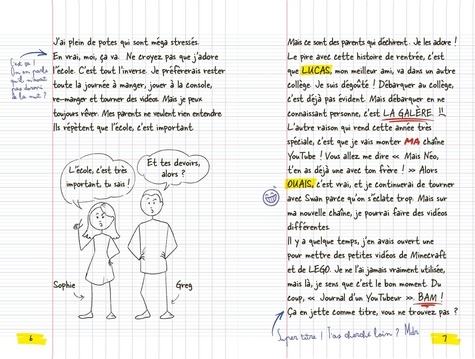 J'ai plein de potes qui sont méga stressés.
En vrai, moi, ça va. Ne croyez pas que j'adore
l'école. C'est tout l'inverse. Je préférerais rester
toute la journée à manger, jouer à la console,
re-manger et tourner des vidéos. Mais je peux
toujours rêver. Mes parents ne veulent rien entendre.
Ils répètent que l'école, c'est important.
L'école, c'est très
important, tu sais !
Et tes devoirs,
alors ?
Sophie
Greg
6
Mais ce sont des parents qui déchirent. Je les adore !
Le pire avec cette histoire de rentrée, c'est
que LUCAS, mon meilleur ami, va dans un autre
collège. Je suis dégoûté ! Débarquer au collège,
c'est déjà pas évident. Mais débarquer en ne
connaissant personne, c'est LA GALÈRE. !!
L'autre raison qui rend cette année très
spéciale, c'est que je vais monter MA chaîne
YouTube ! Vous allez me dire « Mais Néo,
t'en as déjà une avec ton frère ! » Alors
OUAIS, c'est vrai, et je continuerai de tourner
avec Swan parce qu'on s'éclate trop. Mais sur
ma nouvelle chaîne, je pourrai faire des vidéos
différentes.
Il y a quelque temps, j'en avais ouvert une
pour mettre des petites vidéos de Minecraft
et de LEGO. Je ne l'ai jamais vraiment utilisée,
mais là, je sens que c'est le bon moment. Du
coup, « Journal d'un YouTubeur ». BAM !
Ça en jette comme titre, vous ne trouvez pas ?
Super titre ! T'as cherché loin ? Mdr
7